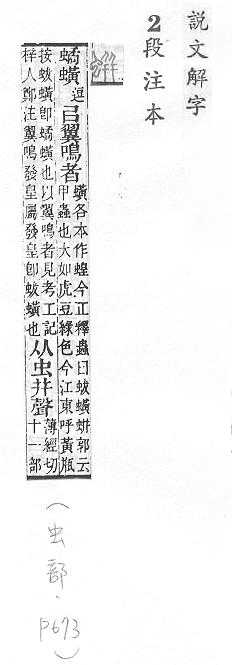 說文解字
2段注本
蟜蟥逗㠯翼鳴者
蟥各本作蝗今正釋蟲曰蛂蟥蛢郭云
甲蟲也大如虎豆綠色今江東呼黃瓶
按蛂蟥卽蟜蟥也以翼鳴者見考工記
梓人鄭注翼鳴發皇屬發皇卽蛂蟥也
从虫幷聲
薄經切
十一部
(虫部．P673)